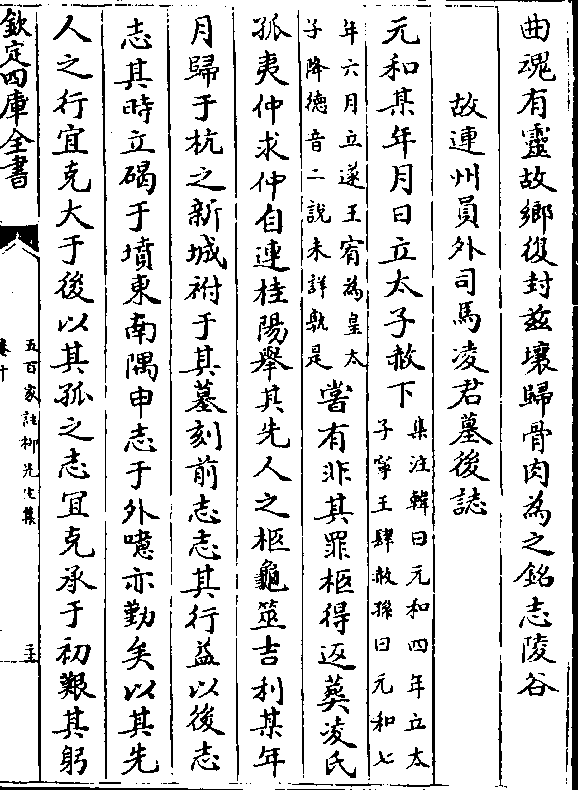 曲魂有靈故鄉復封茲壤歸骨肉為之銘志陵谷
故連州員外司馬凌君墓後誌
元和某年月日立太子赦下
集注韓曰元和四年立太
子寧王肆赦孫曰元和七
年六月立遂王宥為皇太
子降德音二說未詳孰是
嘗有非其罪柩得返葬凌氏
孤夷仲求仲自連桂陽舉其先人之柩龜筮吉利某年
月歸于杭之新城祔于其墓刻前志志其行益以後志
志其時立碣于墳東南隅申志于外噫亦勤矣以其先
人之行宜克大于後以其孤之志宜克承于初艱其躬
欽定四庫全書
五百家註柳先生集
卷十